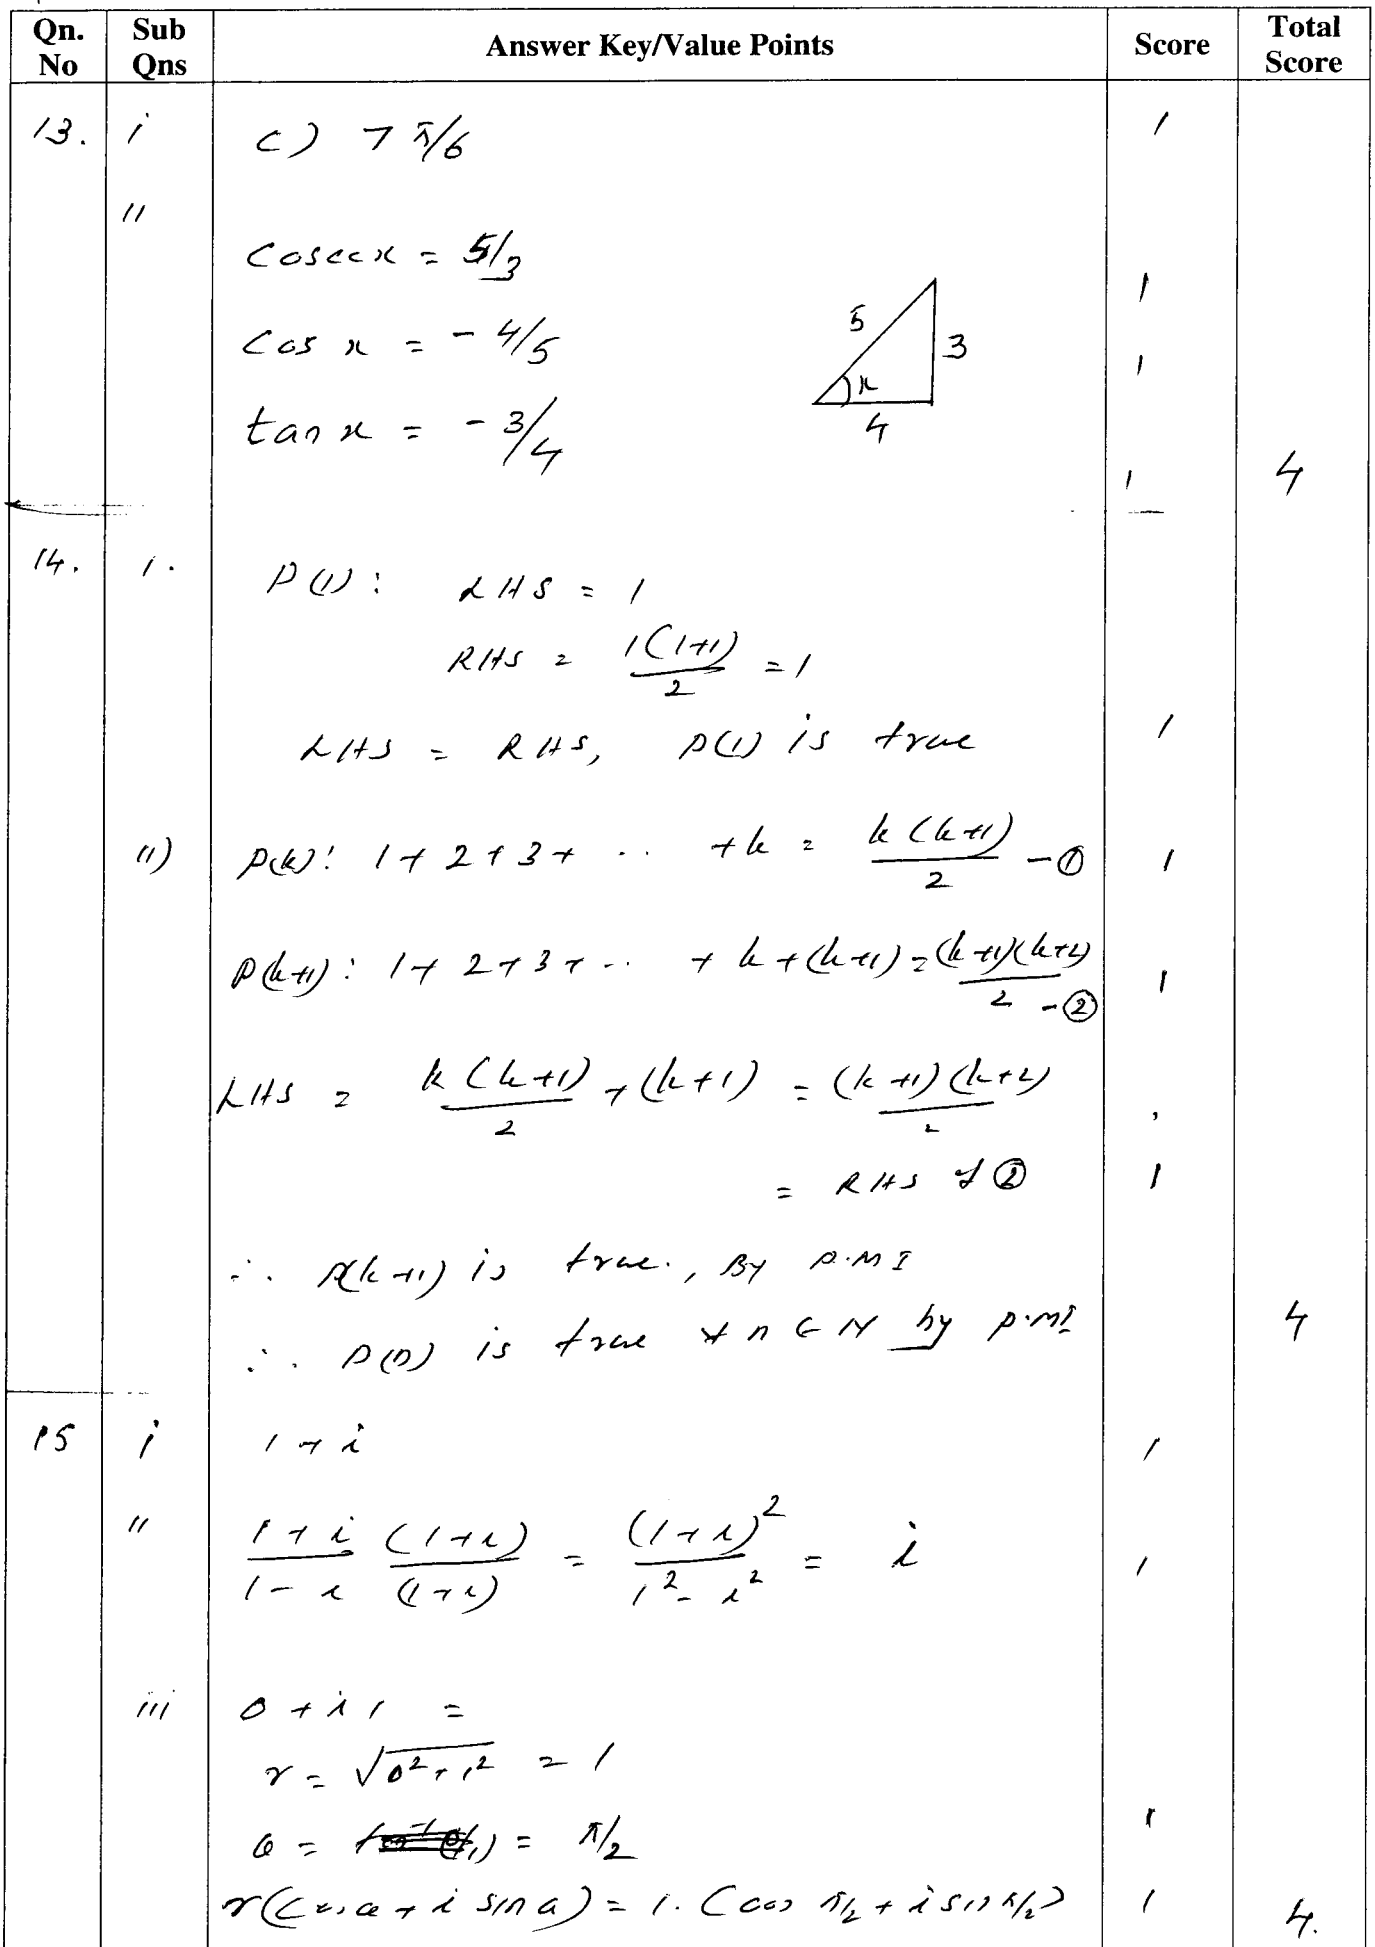 Qn. No Sub Qns Answer Key/Value Points Score Total Score
13. i c) 7π/6 1
ii
Cosecx = 5/3 1
Cos x = - 4/5 1
tan x = - 3/4 1 4
5 3 x 4
14. i. P(1): LHS = 1
RHS = 1(1+1)/2 = 1
LHS = RHS, P(1) is true 1
ii) P(k): 1+2+3+ .. +k = k(k+1)/2 - ① 1
P(k+1): 1+2+3+ .. +k+(k+1) = (k+1)(k+2)/2 - ② 1
LHS = k(k+1)/2 + (k+1) = (k+1)(k+2)/2
= RHS of ② 1
∴ P(k+1) is true., By P.M I
∴ P(n) is true ∀ n ∈ N by P.MI 4
15 i 1+i 1
ii 1+i/1-i (1+i)/(1+i) = (1+i)²/1²-i² = i 1
iii 0+i1 =
r = √0²+1² = 1
θ = = π/2 1
r(Cosθ+i sinθ) = 1.(cos π/2 + i sin π/2) 1 4.